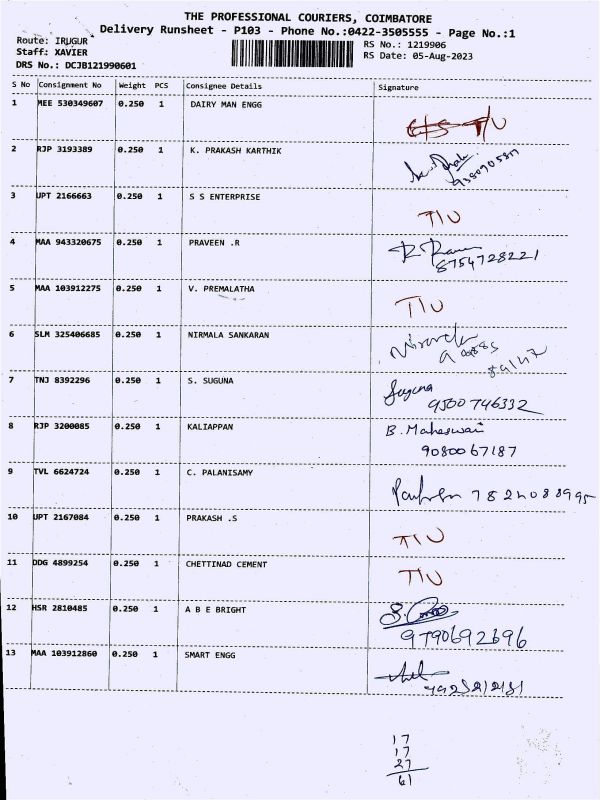 THE PROFESSIONAL COURIERS, COIMBATORE
Delivery Runsheet - P103 - Phone No.:0422-3505555 - Page No.:1
Route: IRUGUR
Staff: XAVIER
DRS No.: DCJB121990601
RS No.: 1219906
RS Date: 05-Aug-2023
S No Consignment No Weight PCS Consignee Details Signature
1 MEE 530349607 0.250 1 DAIRY MAN ENGG T/U
2 RJP 3193389 0.250 1 K. PRAKASH KARTHIK
3 UPT 2166663 0.250 1 S S ENTERPRISE T/U
4 MAA 943320675 0.250 1 PRAVEEN .R
8754728221
5 MAA 103912275 0.250 1 V. PREMALATHA T/U
6 SLM 325406685 0.250 1 NIRMALA SANKARAN
7 TNJ 8392296 0.250 1 S. SUGUNA Suguna
9500746332
8 RJP 3200085 0.250 1 KALIAPPAN B. Maheswari
9080067187
9 TVL 6624724 0.250 1 C. PALANISAMY
10 UPT 2167084 0.250 1 PRAKASH .S T/U
11 DDG 4899254 0.250 1 CHETTINAD CEMENT T/U
12 HSR 2810485 0.250 1 A B E BRIGHT
9790692696
13 MAA 103912860 0.250 1 SMART ENGG
17
17
27
61